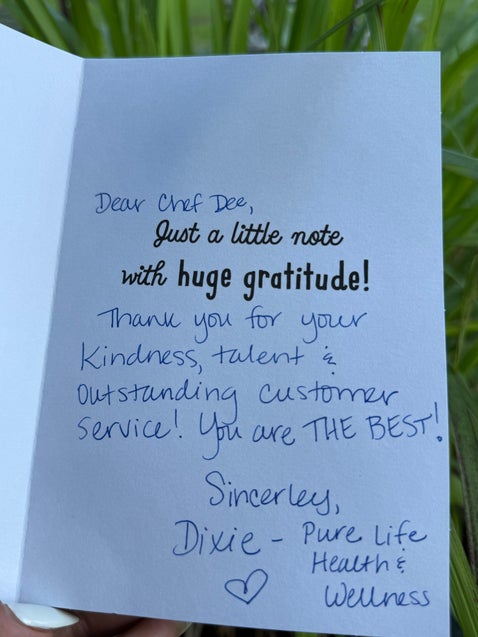 Dear Chef Dee,
Just a little note
with huge gratitude!
Thank you for your
Kindness, talent &
Outstanding customer
Service! You are THE BEST!
Sincerley,
Dixie - Pure Life
Health &
Wellness